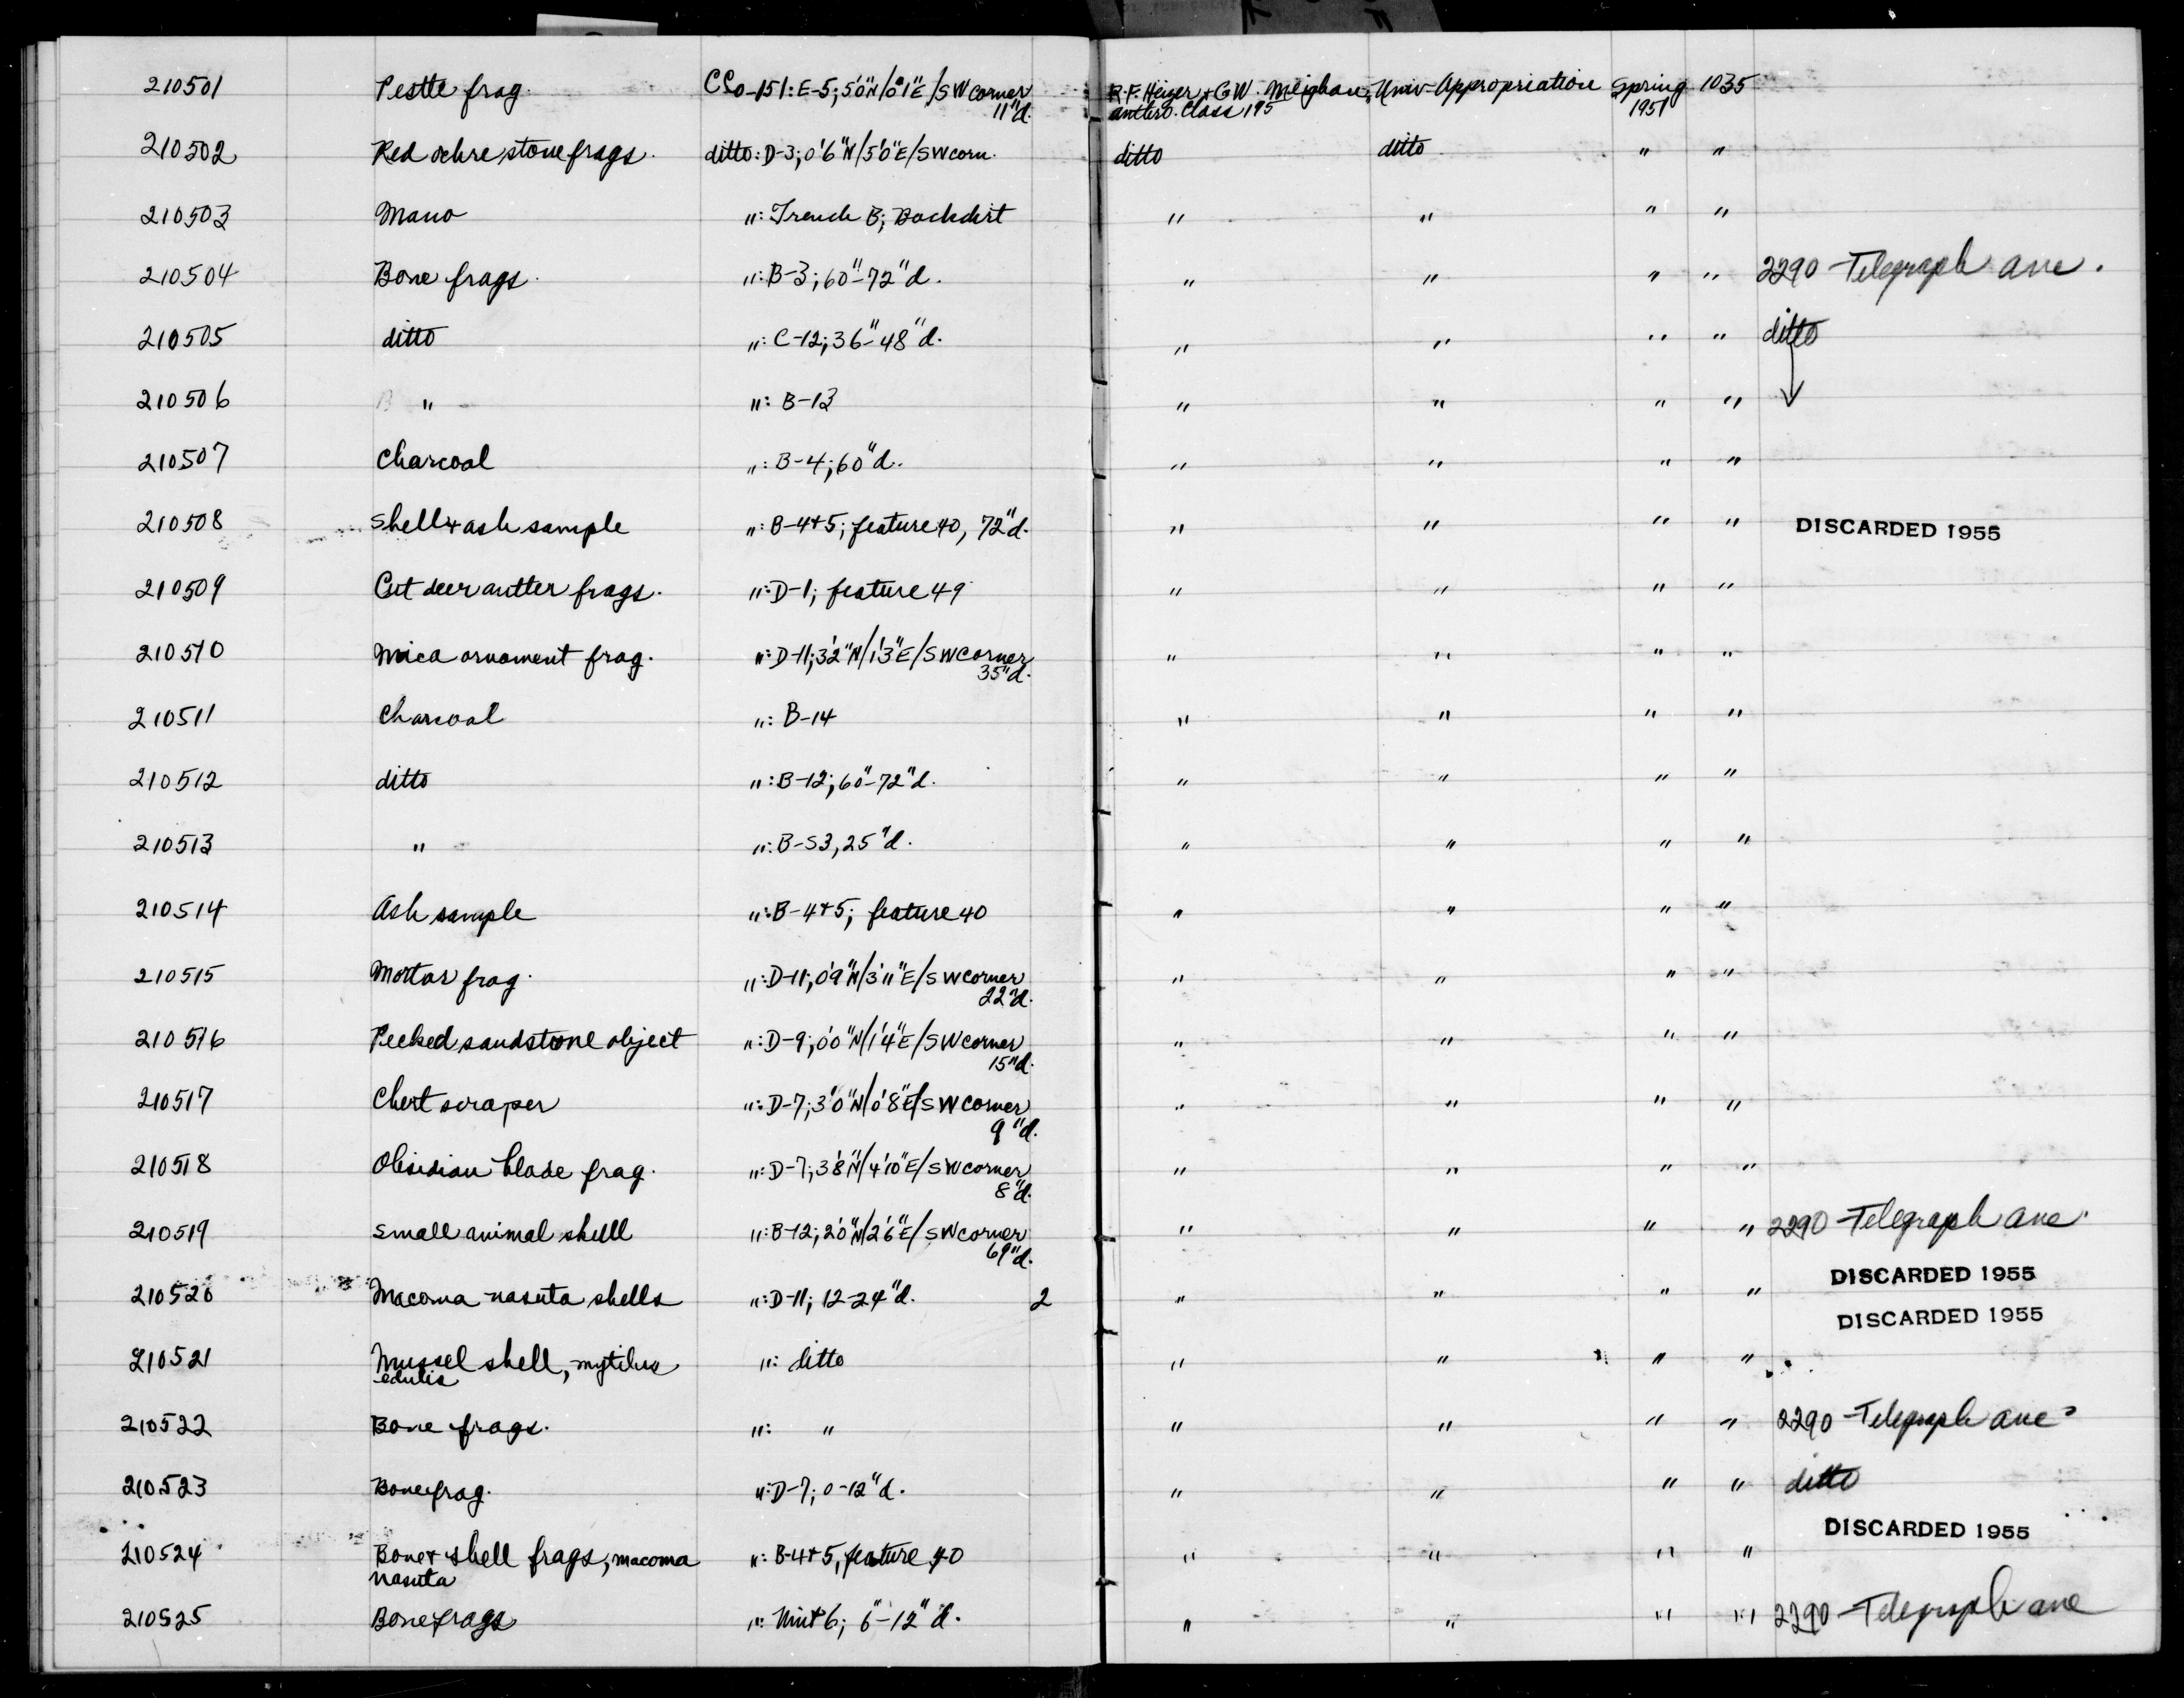 210501 Pestle frag. CCo-151: E-5; 5'0"N/0'1"E/SW corner R.F. Heizer + C.W. Meighan, Univ-Appropriation Spring 1035
11"d. anthro. Class 195 1951
210502 Red ochre stone frags. ditto: D-3; 0'6"N/5'0"E/SW corn. ditto ditto " "
210503 Mano ": Trench B; Backdirt " " " "
210504 Bone frags. ": B-3; 60"-72"d. " " " " 2290 Telegraph ave.
210505 ditto ": C-12; 36"-48"d. " " " " ditto
210506 " ": B-13 " " " "
210507 Charcoal ": B-4; 60"d. " " " "
210508 Shell + ash sample ": B-4+5; feature 40, 72"d. " " " " DISCARDED 1955
210509 Cut deer antler frags. ": D-1; feature 49 " " " "
210510 Mica ornament frag. ": D-11; 3'2"N/1'3"E/SW corner " " " "
35"d.
210511 Charcoal ": B-14 " " " "
210512 ditto ": B-12; 60"-72"d. " " " "
210513 " ": B-S3, 25"d. " " " "
210514 Ash sample ": B-4+5; feature 40 " " " "
210515 Mortar frag. ": D-11; 0'9"N/3'11"E/SW corner " " " "
22"d.
210516 Pecked sandstone object ": D-9; 0'0"N/1'4"E/SW corner " " " "
15"d.
210517 Chert scraper ": D-7; 3'0"N/0'8"E/SW corner " " " "
9"d.
210518 Obsidian blade frag. ": D-7; 3'8"N/4'10"E/SW corner " " " "
8"d.
210519 Small animal skull ": B-12; 2'0"N/2'6"E/SW corner " " " " 2290 Telegraph ave.
69"d.
DISCARDED 1955
210520 Macoma nasuta shells ": D-11; 12-24"d. 2 " " " "
DISCARDED 1955
210521 Mussel shell, mytilus ": ditto " " " "
edulis
210522 Bone frags. ": " " " " " 2290 Telegraph ave
210523 Bone frag. ": D-7; 0-12"d. " " " " ditto
DISCARDED 1955
210524 Bone + shell frags, macoma ": B-4+5, feature 40 " " " "
nasuta
210525 Bone frags ": Unit 6; 6"-12"d. " " " " 2290 Telegraph ave